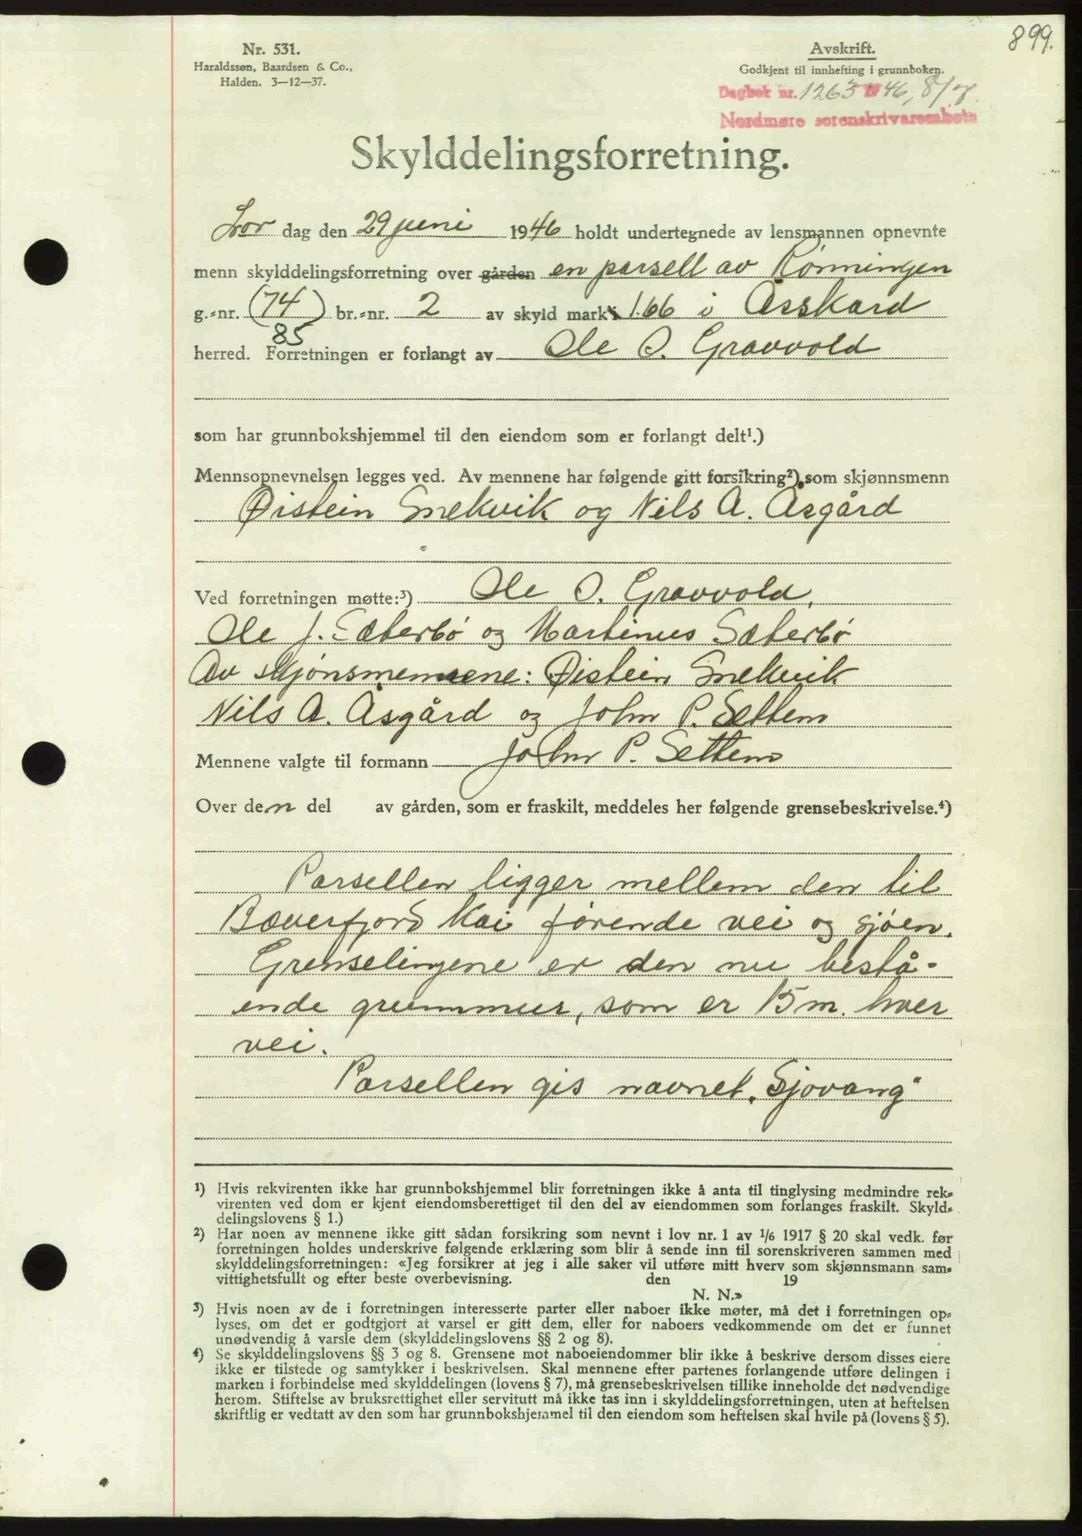 899.
Nr. 531.
Haraldssøn, Baardsen & Co.,
Halden. 3—12—37.
Avskrift.
Godkjent til innhefting i grunnboken.
Dagbok nr. 1263 1946, 8/7.
Nordmøre sorenskriverembete
Skylddelingsforretning.
Lør dag den 29 juni 1946 holdt undertegnede av lensmannen opnevnte
menn skylddelingsforretning over gården en parsell av Rønningen
g.-nr. (74) br.-nr. 2 av skyld mark 1.66 i Åsskard
85
herred. Forretningen er forlangt av Ole O. Gravvold
som har grunnbokshjemmel til den eiendom som er forlangt delt¹.)
Mennsopnevnelsen legges ved. Av mennene har følgende gitt forsikring²) som skjønnsmenn
Øistein Snekvik og Nils A. Åsgård
Ved forretningen møtte:³) Ole O. Gravvold,
Ole J. Sæterbø og Martinus Sæterbø
Av skjønsmennene: Øistein Snekvik
Nils A. Åsgård og John P. Settem
Mennene valgte til formann John P. Settem
Over den del av gården, som er fraskilt, meddeles her følgende grensebeskrivelse.⁴)
Parsellen ligger mellem den til
Bæverfjord Kai førende vei og sjøen.
Grenselinjene er den nu bestå-
ende grunnmur, som er 15 m. hver
vei.
Parsellen gis navnet „Sjøvang"
¹) Hvis rekvirenten ikke har grunnbokshjemmel blir forretningen ikke å anta til tinglysing medmindre rek-
virenten ved dom er kjent eiendomsberettiget til den del av eiendommen som forlanges fraskilt. Skyld-
delingslovens § 1.)
²) Har noen av mennene ikke gitt sådan forsikring som nevnt i lov nr. 1 av 1/6 1917 § 20 skal vedk. før
forretningen holdes underskrive følgende erklæring som blir å sende inn til sorenskriveren sammen med
skylddelingsforretningen: «Jeg forsikrer at jeg i alle saker vil utføre mitt hverv som skjønnsmann sam-
vittighetsfullt og efter beste overbevisning. den 19
N. N.»
³) Hvis noen av de i forretningen interesserte parter eller naboer ikke møter, må det i forretningen op-
lyses, om det er godtgjort at varsel er gitt dem, eller for naboers vedkommende om det er funnet
unødvendig å varsle dem (skylddelingslovens §§ 2 og 8).
⁴) Se skylddelingslovens §§ 3 og 8. Grensene mot naboeiendommer blir ikke å beskrive dersom disses eiere
ikke er tilstede og samtykker i beskrivelsen. Skal mennene efter partenes forlangende utføre delingen i
marken i forbindelse med skylddelingen (lovens § 7), må grensebeskrivelsen tillike inneholde det nødvendige
herom. Stiftelse av bruksrettighet eller servitutt må ikke tas inn i skylddelingsforretningen, uten at heftelsen
skriftlig er vedtatt av den som har grunnbokshjemmel til den eiendom som heftelsen skal hvile på (lovens § 5).